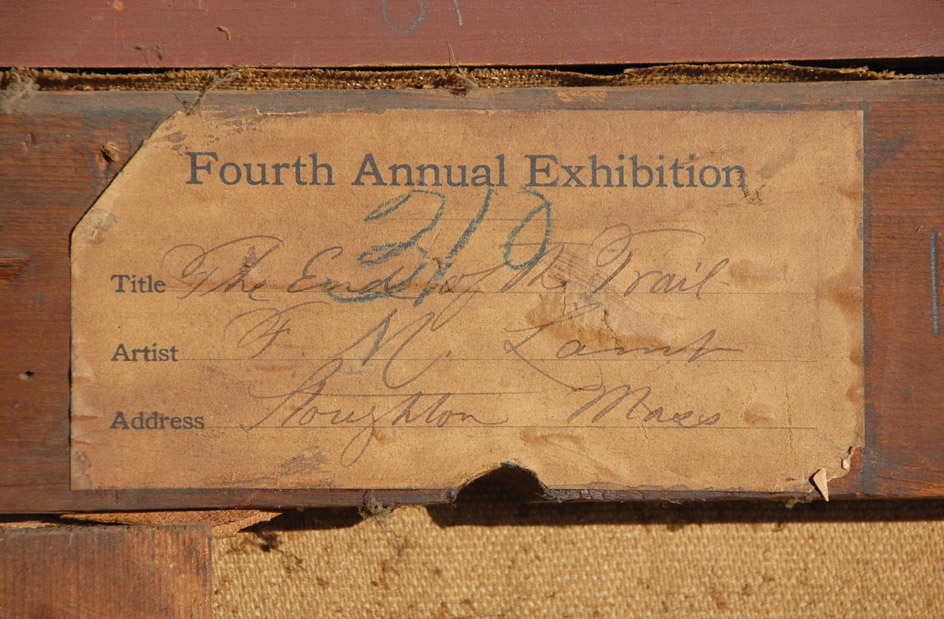 Fourth Annual Exhibition
310
Title The End of the Trail
Artist F. M. Lamb
Address Stoughton Mass